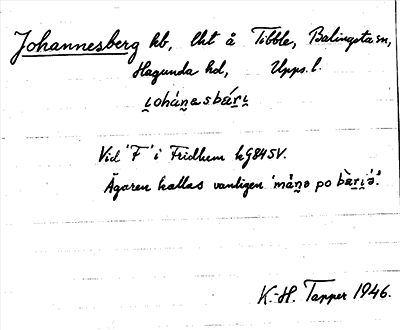 Johannesberg hb, lht å Tibble, Balingsta sn,
Hagunda hd, Upps. l.
i̯ohán̯asbár̯i̯
Vid 'F' i Fridhem hG845V.
Ägaren kallas vanligen 'mán̯ə po bàr̯i̯ə'.
K.-H. Tapper 1946.